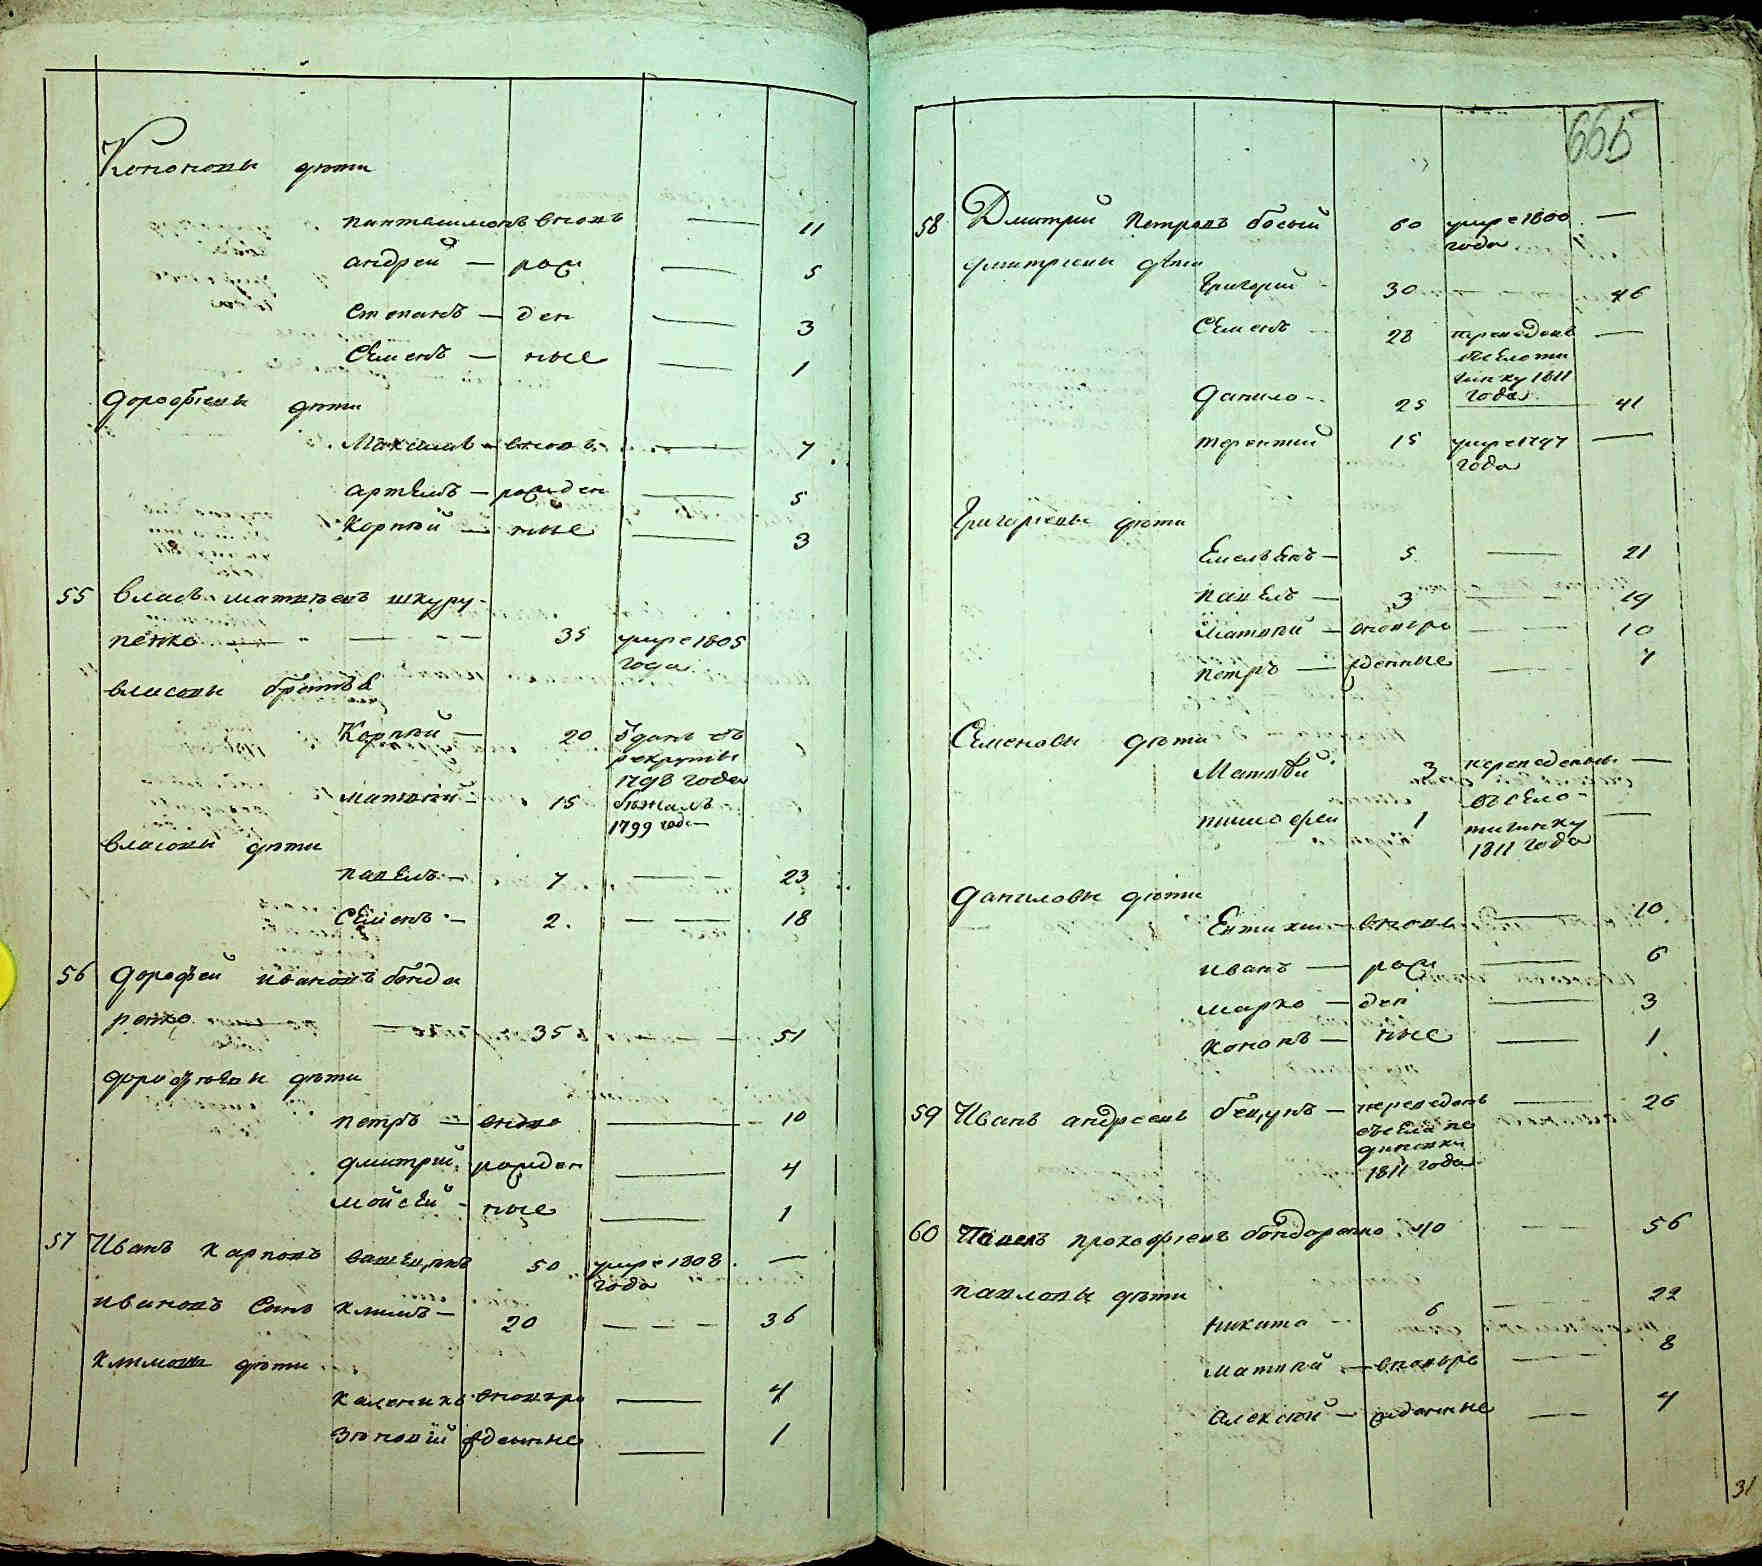 Кононовы дѣти
Пантелимонъ вновь — 11
андрей — рож — 5
Степанъ — ден — 3
Семенъ — ные — 1
Дорофѣевы дѣти
Максимъ — вновь — 7
артемъ — рожден — 5
Корнѣй — ные — 3
55 Власъ матвѣевъ шкуру-
пенко — 35 умре 1805 года
власовы братья
Корнѣй — 20 Отданъ въ рекруты 1798 года
матвѣй — 15 бѣжалъ 1799 года —
власовы дѣти
павелъ — 7 — 23
Семенъ — 2. — 18
56 Дорофей ивановъ бонда
ренко — 35 — 51
дорофѣевы дѣти
петръ — вново — 10
дмитрий рожден — 4
мойсей — ные — 1
57 Иванъ карповъ 50 умре 1808 года —
ивановъ Сынъ климъ — 20 — 36
климовы дѣти
каленикъ вновьро — 4
Зѣновій жденные — 1
665
58 Дмитрий петровъ босый 60 умре 1800 года —
дмитриевы дѣти
Григорий 30 — 46
Семенъ 28 переведенъ въ село 1811 года —
Данило — 25 — 41
терентий 15 умре 1797 года —
Григорѣевы дѣти
Емельянъ — 5 — 21
павелъ — 3 — 19
матвѣй — вновьро — 10
петръ — жденные — 7
Семеновы дѣти
Матвѣй 3 переведены —
въ село
тимофей 1 1811 года —
Даниловы дѣти
Евтихий — вновь — 10
иванъ — рож — 6
марко — ден — 3
кононъ — ные — 1
59 Иванъ андреевъ — переведенъ — 26
1811 года
60 Павелъ прокофѣевъ бондаренко 40 — 56
павловы дѣти
никита — 6 — 22
матвѣй — вновьро — 8
алексѣй — жденные — 4
31